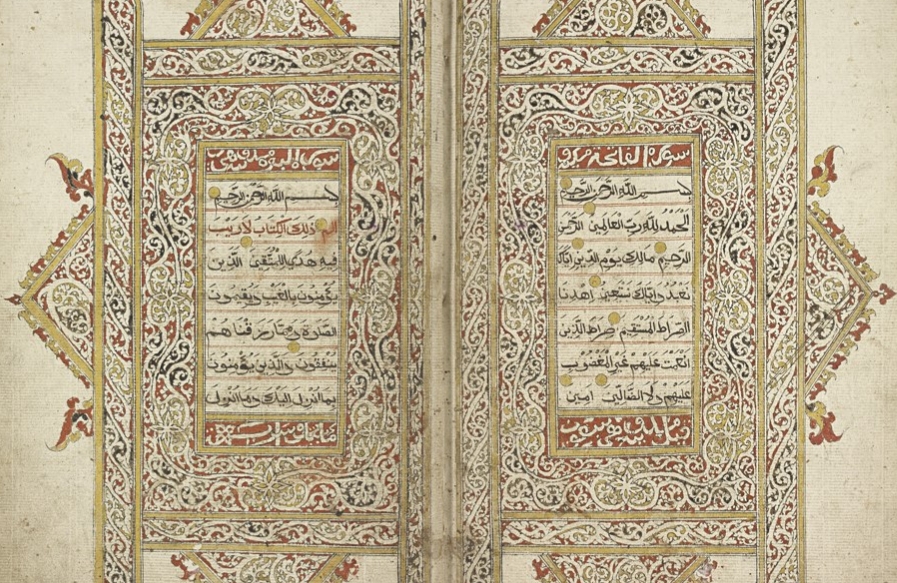 سورة الفاتحة
بسم الله الرحمن الرحيم
الحمد لله رب العالمين الرحمن
الرحيم مالك يوم الدين اياك
نعبد واياك نستعين اهدنا
الصراط المستقيم صراط الذين
انعمت عليهم غير المغضوب
عليهم ولا الضالين امين
سورة البقرة
بسم الله الرحمن الرحيم
الم ذلك الكتاب لا ريب
فيه هدى للمتقين الذين
يؤمنون بالغيب ويقيمون
الصلوة ومما رزقناهم
ينفقون والذين يؤمنون
بما انزل اليك وما انزل